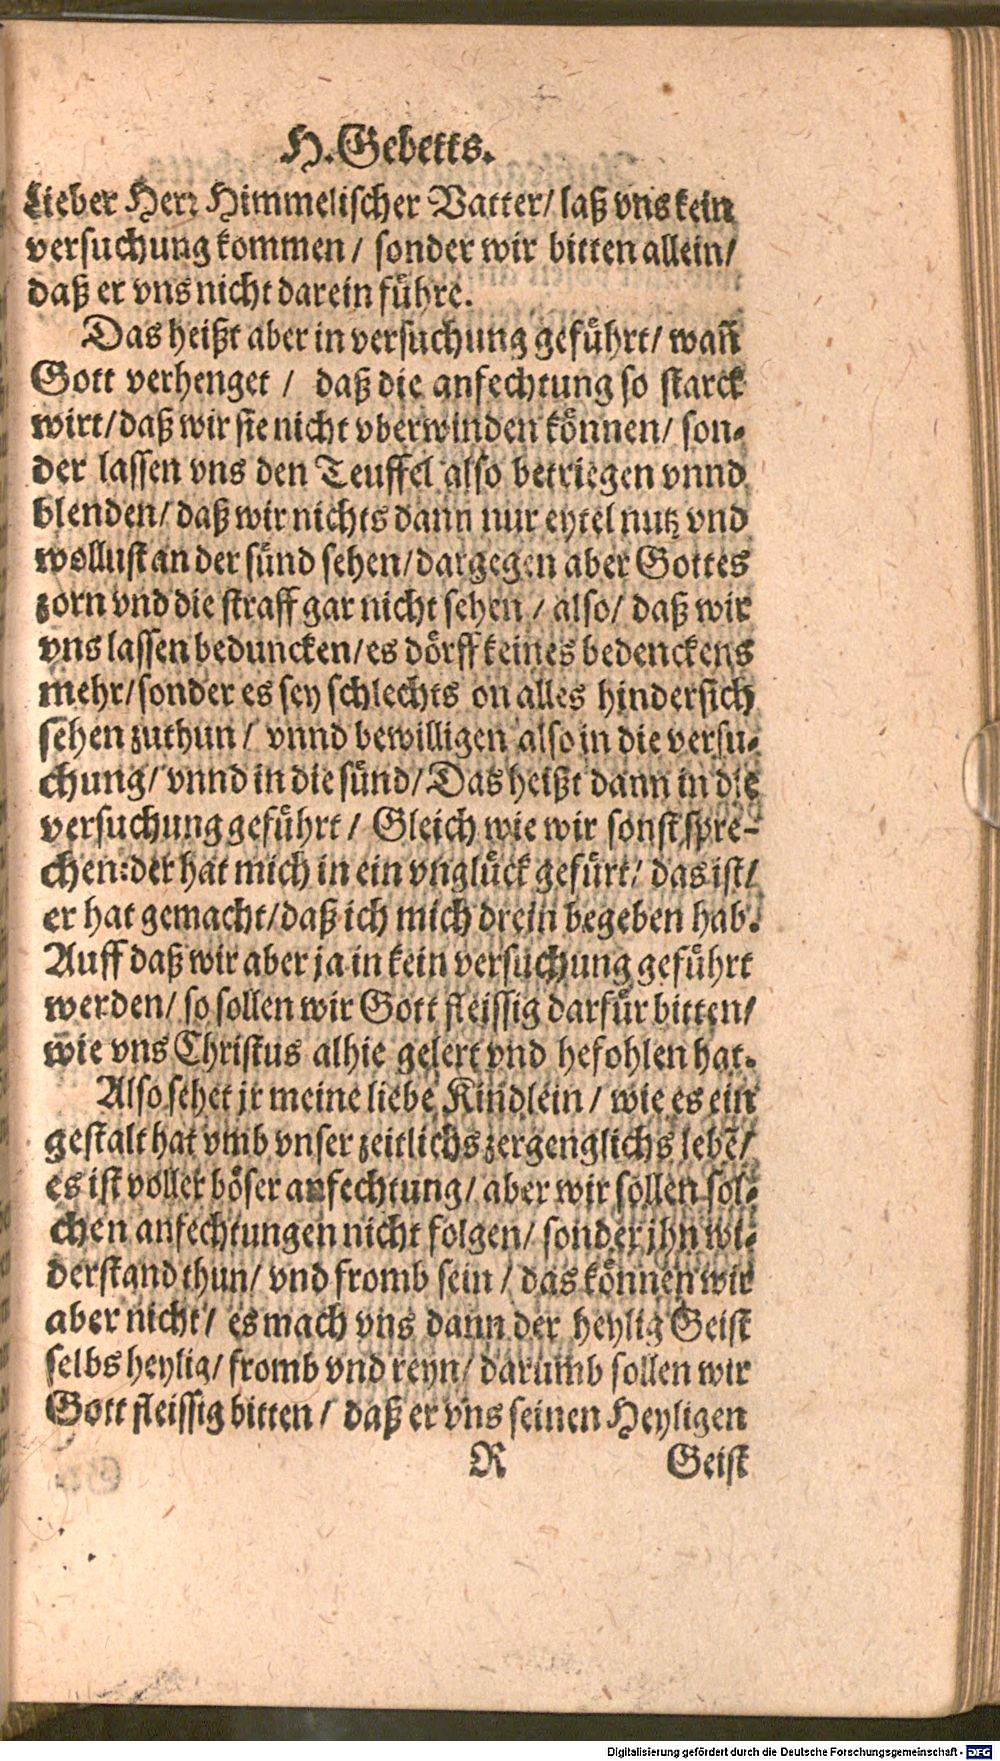 H. Gebetts.
Lieber Herr Himmelischer Vatter/ laß vns kein
versuchung kommen/ sonder wir bitten allein/
daß er vns nicht darein führe.
Das heißt aber in versuchung geführt/ wañ
Gott verhenget / daß die anfechtung so starck
wirt/ daß wir sie nicht vberwinden können/ son-
der lassen vns den Teuffel also betriegen vnnd
blenden/ daß wir nichts dann nur eytel nutz vnd
wollust an der sünd sehen/ dargegen aber Gottes
zorn vnd die straff gar nicht sehen / also/ daß wir
vns lassen beduncken/ es dörff keines bedenckens
mehr/ sonder es sey schlechts on alles hindersich
sehen zuthun / vnnd bewilligen also in die versu-
chung/ vnnd in die sünd/ Das heißt dann in die
versuchung geführt / Gleich wie wir sonst spre-
chen: der hat mich in ein vnglück gefürt/ das ist/
er hat gemacht/ daß ich mich drein begeben hab.
Auff daß wir aber ja in kein versuchung geführt
werden/ so sollen wir Gott fleissig darfür bitten/
wie vns Christus alhie gelert vnd hefohlen hat.
Also sehet jr meine liebe Kindlein / wie es ein
gestalt hat vmb vnser zeitlichs zergenglichs lebẽ/
es ist voller böser anfechtung/ aber wir sollen sol-
chen anfechtungen nicht folgen/ sonder jhn wi-
derstand thun/ vnd fromb sein / das können wir
aber nicht/ es mach vns dann der heylig Geist
selbs heylig/ fromb vnd reyn/ darumb sollen wir
Gott fleissig bitten / daß er vns seinen Heyligen
R Geist
Digitalisierung gefördert durch die Deutsche Forschungsgemeinschaft - DFG